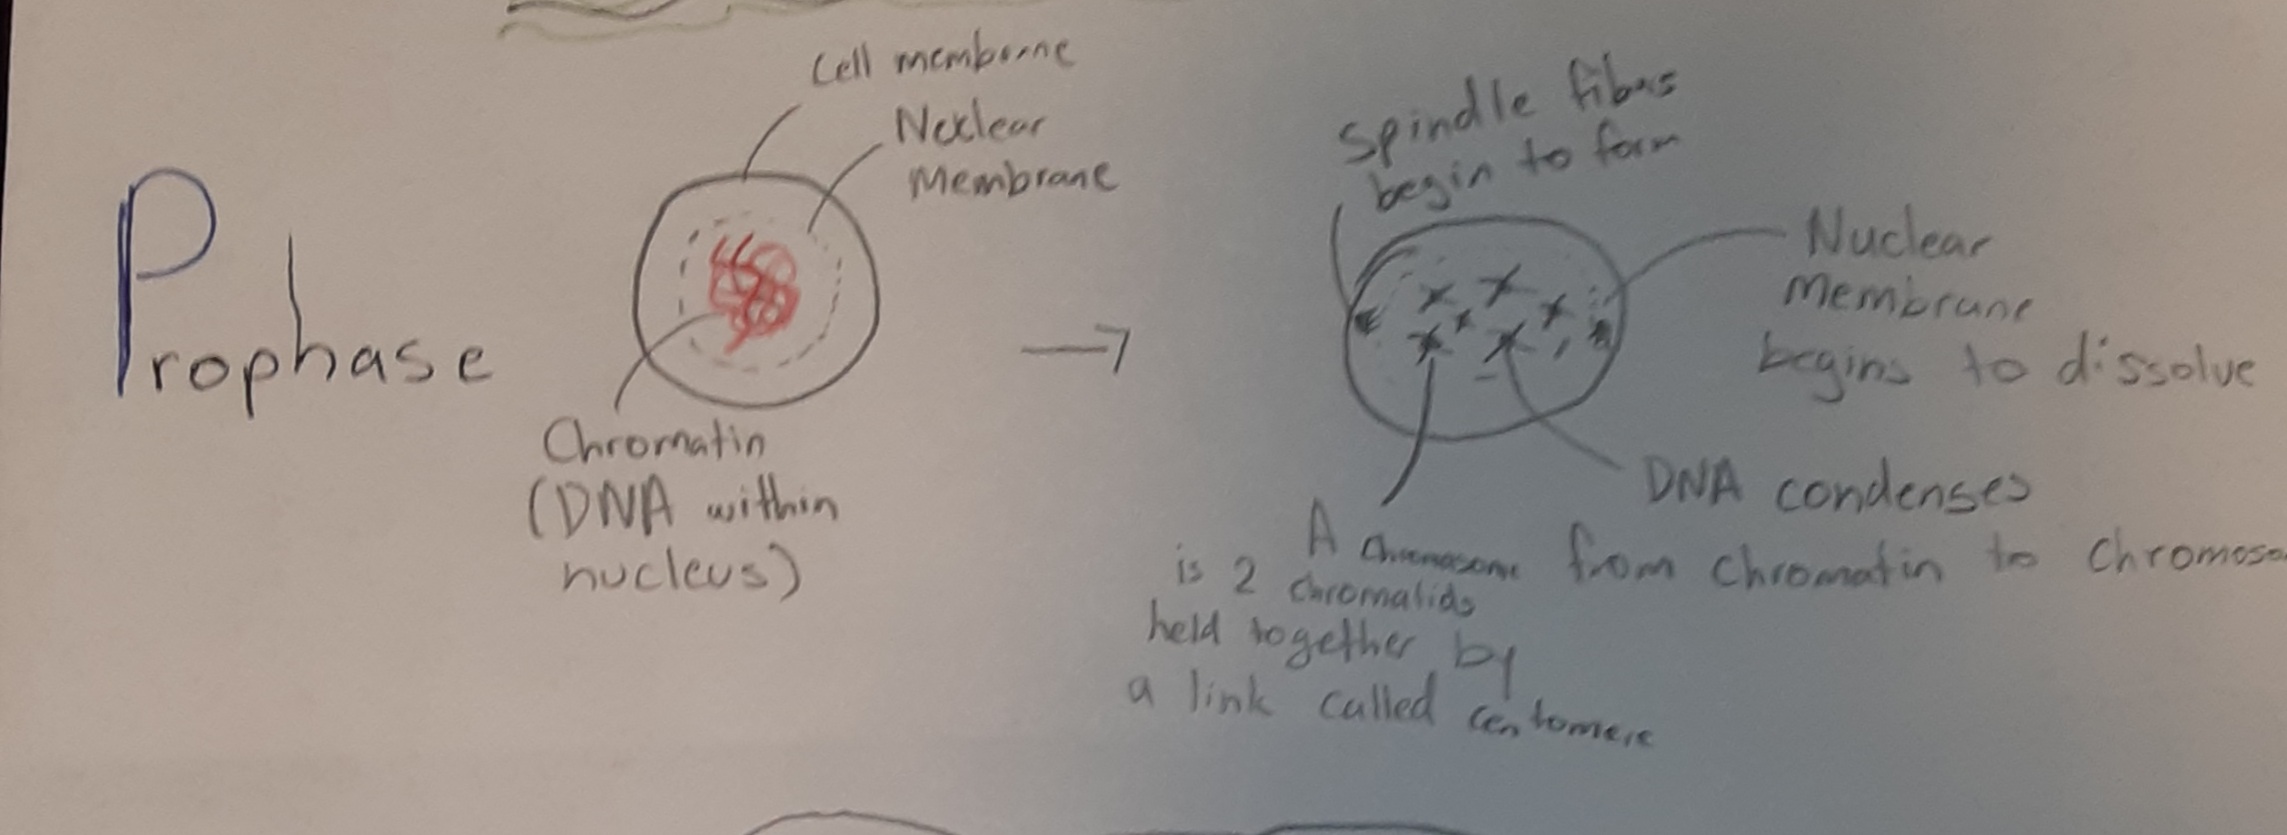 Prophase
Cell membrane
Nuclear
Membrane
Chromatin
(DNA within
nucleus)
Spindle fibers
begin to form
Nuclear
Membrane
begins to dissolve
DNA condenses
from chromatin to chromoso
A chromosome
is 2 chromatids
held together by
a link called centomere